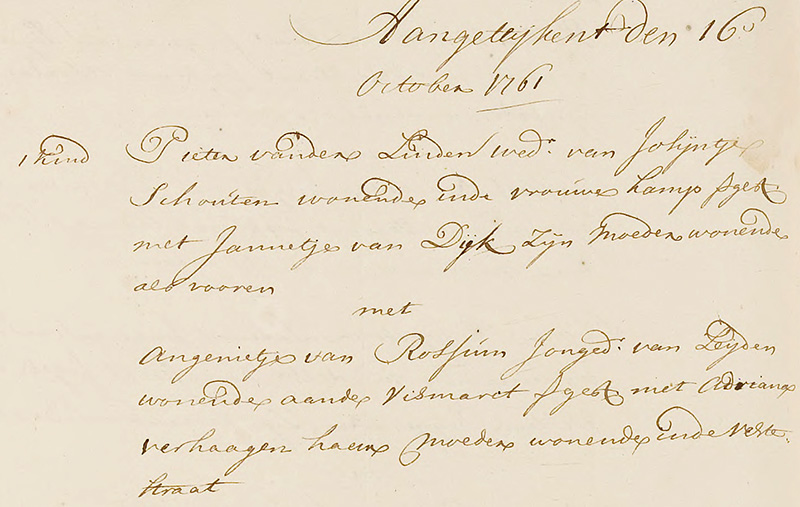 Aangetijkent den 16
October 1761
1 kind Pieter vander Linden wed.r van Josijntje
Schouten wonende inde vrouwe kamp sgest
met Jannetje van Dijk zijn moeder wonende
als vooren
met
Angenietje van Rossum Jonged.r van Leyden
wonende aande Vismarct sgest met Adriana
verhaagen haer moeder wonende inde Veste
straat